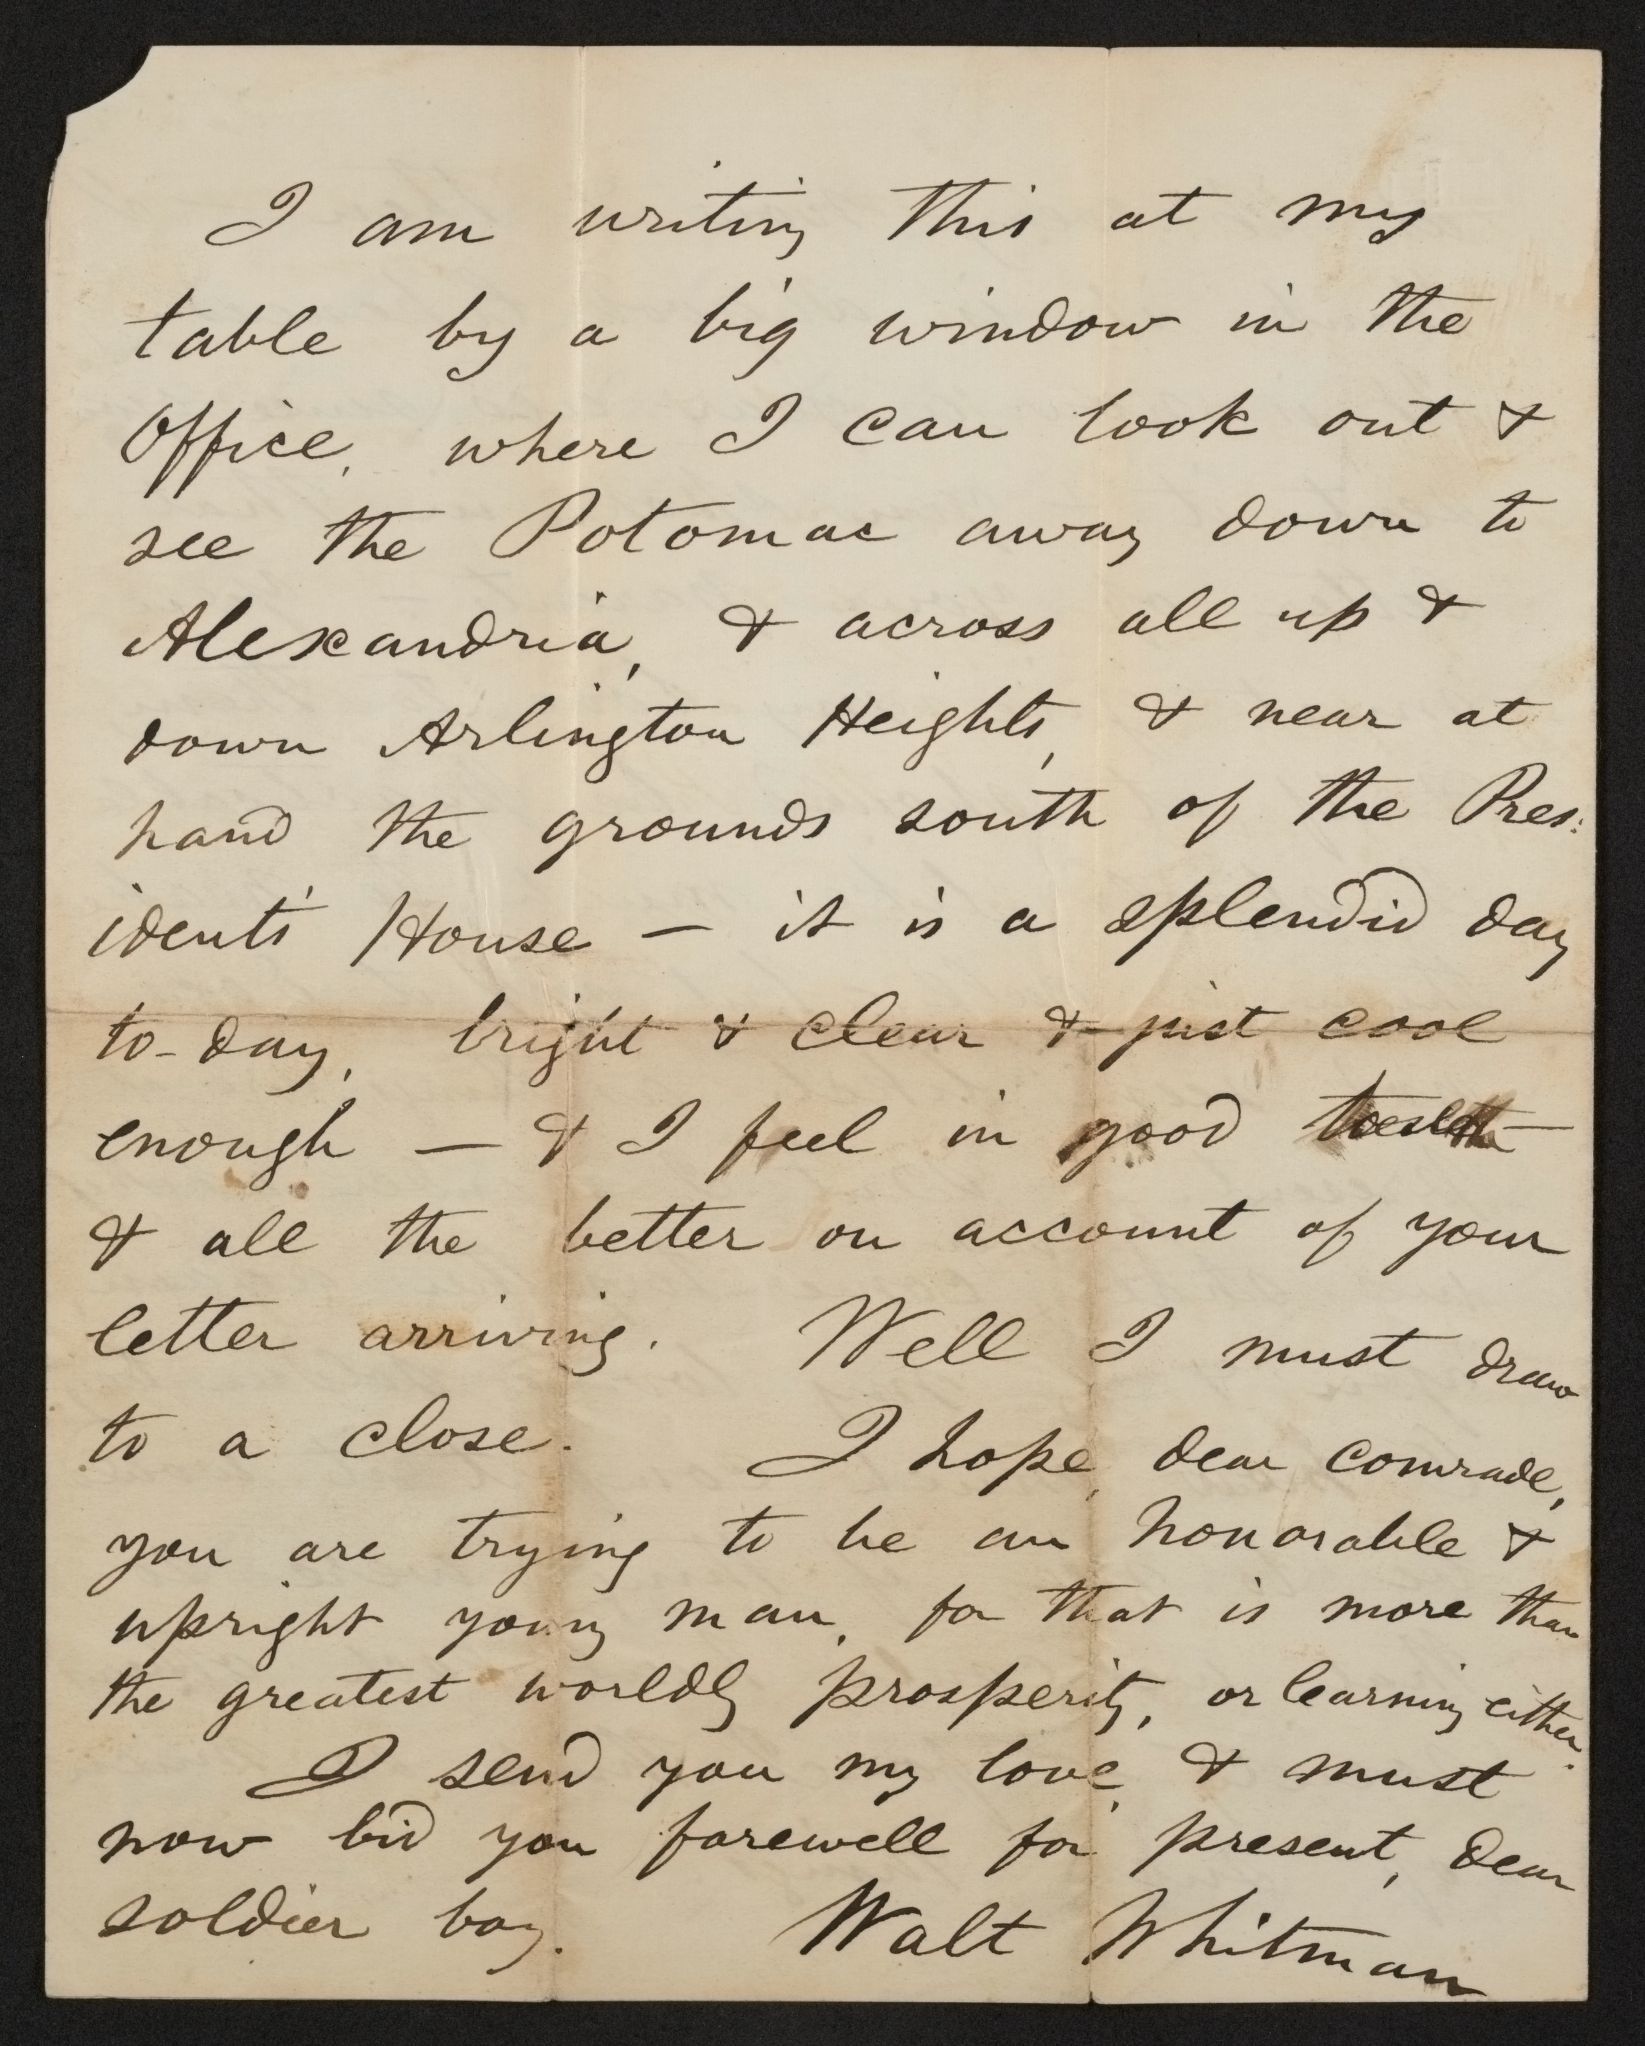 I am writing this at my
table by a big window in the
Office, where I can look out &
see the Potomac away down to
Alexandria, & across all up &
down Arlington Heights, & near at
hand the grounds south of the Pres:
ident's House — it is a splendid day
to-day, bright & clear & just cool
enough — & I feel in good —
& all the better on account of your
letter arriving. Well I must draw
to a close. I hope, dear comrade,
you are trying to be an honorable &
upright young man, for that is more than
the greatest worldly prosperity, or learning either.
I send you my love, & must
now bid you farewell for present, dear
soldier boy. Walt Whitman